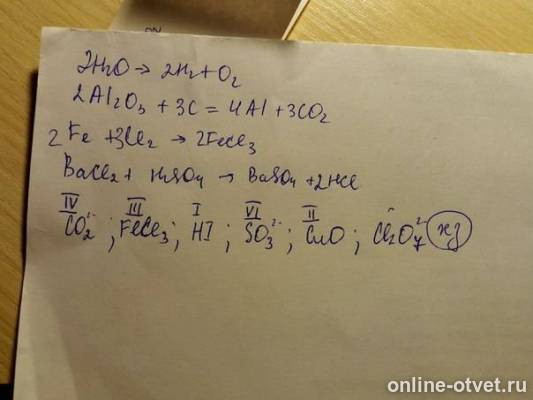 2H₂O → 2H₂ + O₂
2Al₂O₃ + 3C = 4Al + 3CO₂
2Fe + 3Cl₂ → 2FeCl₃
BaCl₂ + H₂SO₄ → BaSO₄ + 2HCl
IV III I VI II
CO₂²⁻ ; FeCl₃ ; HI ; SO₃²⁻ ; CuO ; Cl₂O₇²⁻ хз
online-otvet.ru